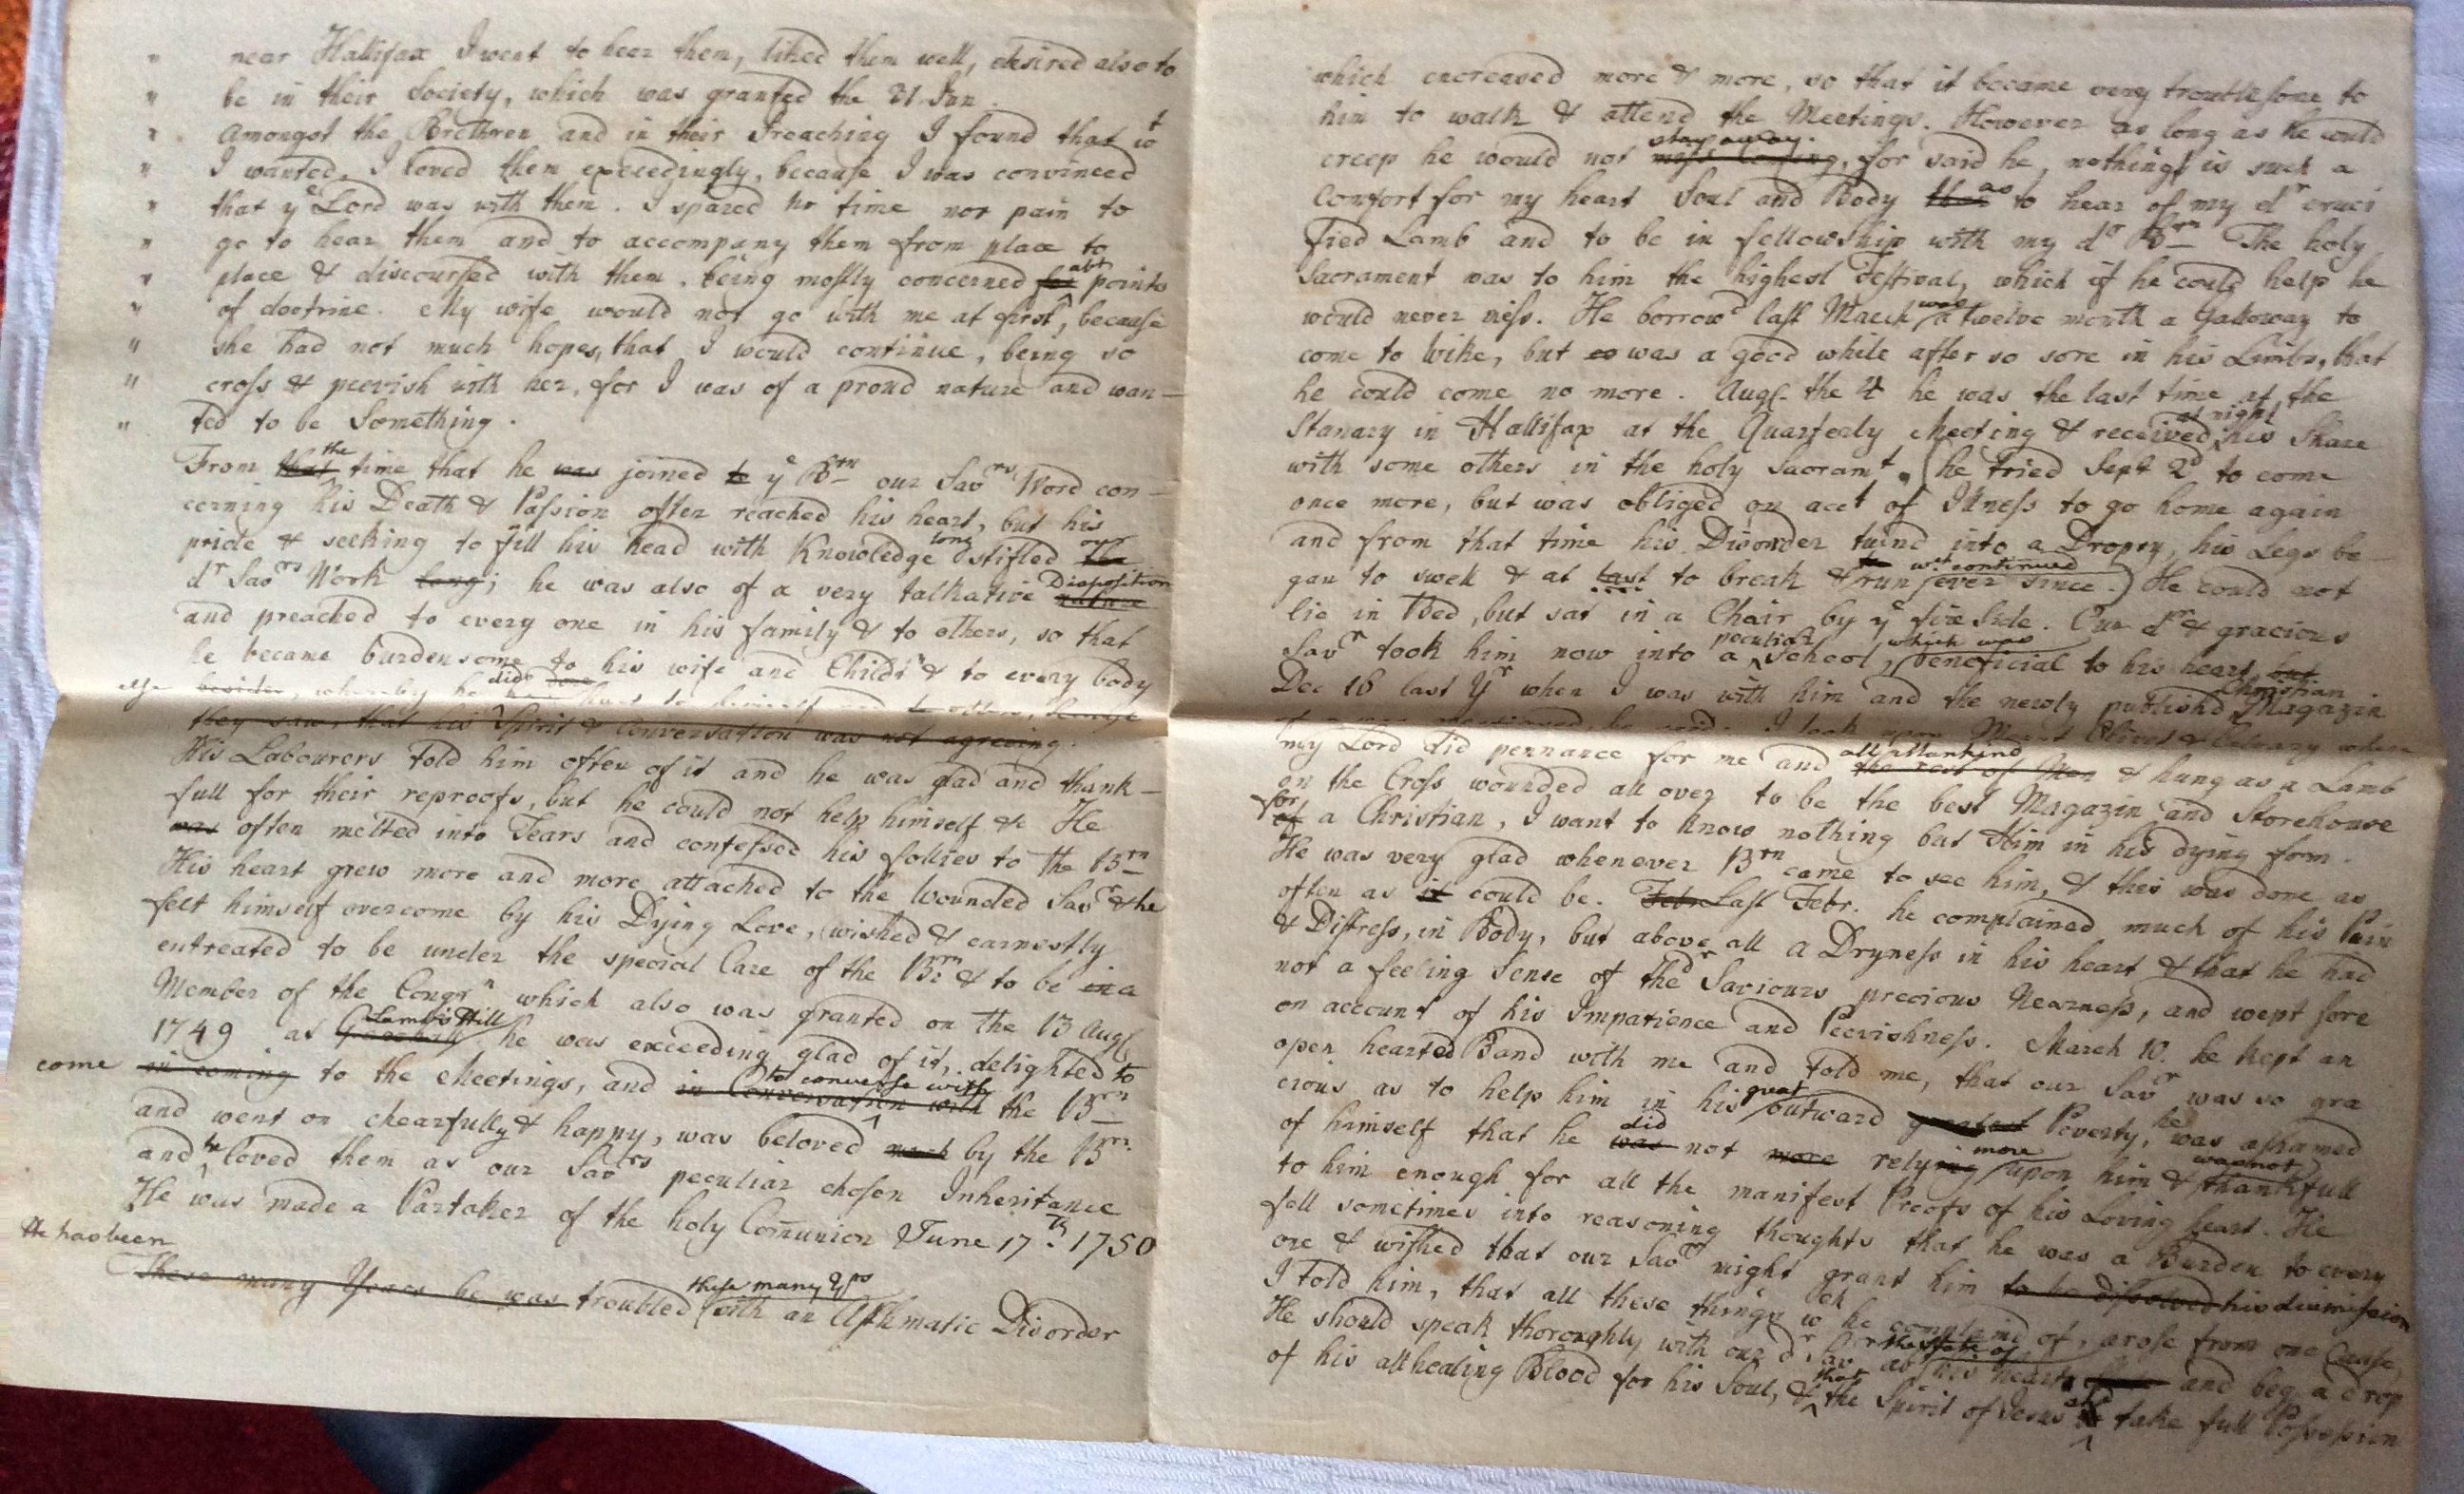 " near Hallifax I went to hear them, liked them well, desired also to
" be in their Society, which was granted the 31 Jan.
" Amongst the Brethren and in their Preaching I found that wt
" I wanted. I loved them exceedingly, because I was convinced
" that ye Lord was with them. I spared no time nor pain to
" go to hear them and to accompany them from place to
" place & discoursed with them, being mostly concerned for abt points
" of doctrine. My wife would not go with me at first, because
" she had not much hopes, that I would continue, being so
" cross & peevish with her, for I was of a proud nature and wan-
" ted to be Something.
From that the time that he was joined to ye Brn our Savrs Word con-
cerning his Death & Passion often reached his heart, but his
pride & seeking to fill his head with Knowledge long stifled the our
dr Savrs Work long; he was also of a very talkative Disposition nature
and preached to every one in his family & to others, so that
he became burdensome to his wife and Childrn & to every body
else besides, whereby he did hurt to himself and to others, because
they saw, that his Spirit & Conversation was not agreeing.
His Labourers told him often of it and he was glad and thank-
full for their reproofs, but he could not help himself &c He
was often melted into Tears and confessed his follies to the Brn
His heart grew more and more attached to the Wounded Savr & he
felt himself overcome by his Dying Love, wished & earnestly
entreated to be under the special Care of the Brn & to be in a
Member of the Congrn which also was granted on the 13 Augt
1749 at Gracehall Lambs Hill he was exceeding glad of it, delighted to
come in coming to the Meetings, and in Conversation with to converse with the Brn
and went on chearfully & happy, was beloved much by the Brn
and he loved them as our Savrs peculiar chosen Inheritance
He was made a Partaker of the holy Comunion June 17th 1750
He has been
These many Years he was troubled these many Yrs with an Asthmatic Disorder
which encreased more & more, so that it became very troublesome to
him to walk & attend the Meetings. However as long as he could
creep he would not miss coming stay away, for said he, nothing is such a
Comfort for my heart Soul and Body than as to hear of my dr cruci
fied Lamb and to be in fellowship with my dr Brn The holy
Sacrament was to him the highest Festival, which if he could help he
would never miss. He borrowd last March was a twelve month a Galloway to
come to Wike, but was a good while after so sore in his Limbs, that
he could come no more. Augt. the 4 he was the last time at the
Stanary in Hallifax at the Quarterly Meeting & received at night his Share
with some others in the holy Sacramt. (he tried Sept 2d to come
once more, but was obliged on acct of Ilness to go home again
and from that time his Disorder turnd into a Dropsy, his Legs be-
gan to swell & at last to break & run wch continued ever since.) He could not
lie in Bed, but sat in a Chair by ye fire Side. Our dr & gracious
Savr took him now into a peculiar School, which was beneficial to his heart, but
Dec 16 last Yr when I was with him and the newly publishd Christian Magazin
he said: I look upon Mount Olivet & Calvary where
my Lord did pennance for me and the rest of Men all Mankind & hung as a Lamb
on the Cross wounded all over to be the best Magazin and Storehouse
of for a Christian, I want to know nothing but Him in his dying form.
He was very glad whenever Brn came to see him, & this was done as
often as it could be. Febr. Last Febr. he complained much of his Pain
& Distress, in Body, but above all a Dryness in his heart & that he had
not a feeling Sense of the dr Saviours precious Nearness, and wept sore
on account of his Impatience and Peevishness. March 10. he kept an
open hearted Band with me and told me, that our Savr was so gra
cious as to help him in his great outward greatest Poverty, he was ashamed
of himself that he was did not more relying more upon him & was not thankfull
to him enough for all the manifest Proofs of his Loving heart. He
fell sometimes into reasoning thoughts that he was a Burden to every
one & wished that our Savr might grant him to be dissolved his dismission
I told him, that all these things wch he complaind of, arose from one Cause,
He should speak thoroughly with our dr Savr abt the State of his heart and beg a drop
of his allhealing Blood for his Soul, & that the Spirit of Jesus take full Possession